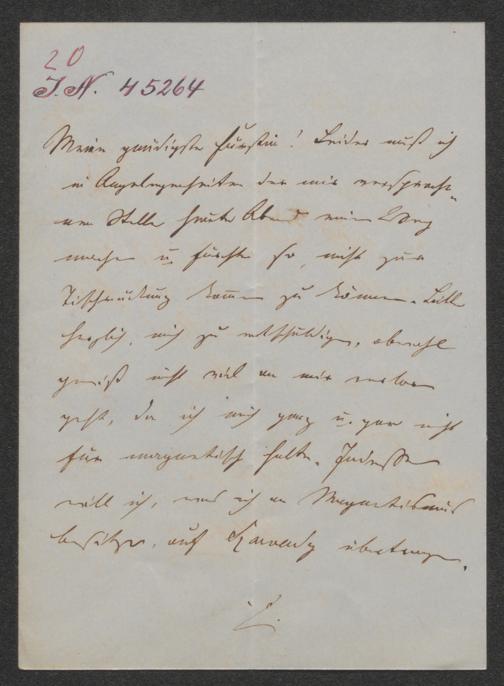 20
I.N. 45264
Meine gnädigste Fürstin! Leider muß ich
in Angelegenheiten der mir versproche-
nen Stelle heute Abend einen Weg
machen u fürchte so, nicht zur
Tischrückung kommen zu können. Bitte
herzlich, mich zu entschuldigen, obwohl
gewiß nicht viel an mir verloren
geht, da ich mich ganz u. gar nicht
für magnetisch halte. Indessen
will ich, was ich an Magnetismus
besitze, auf übertragen.